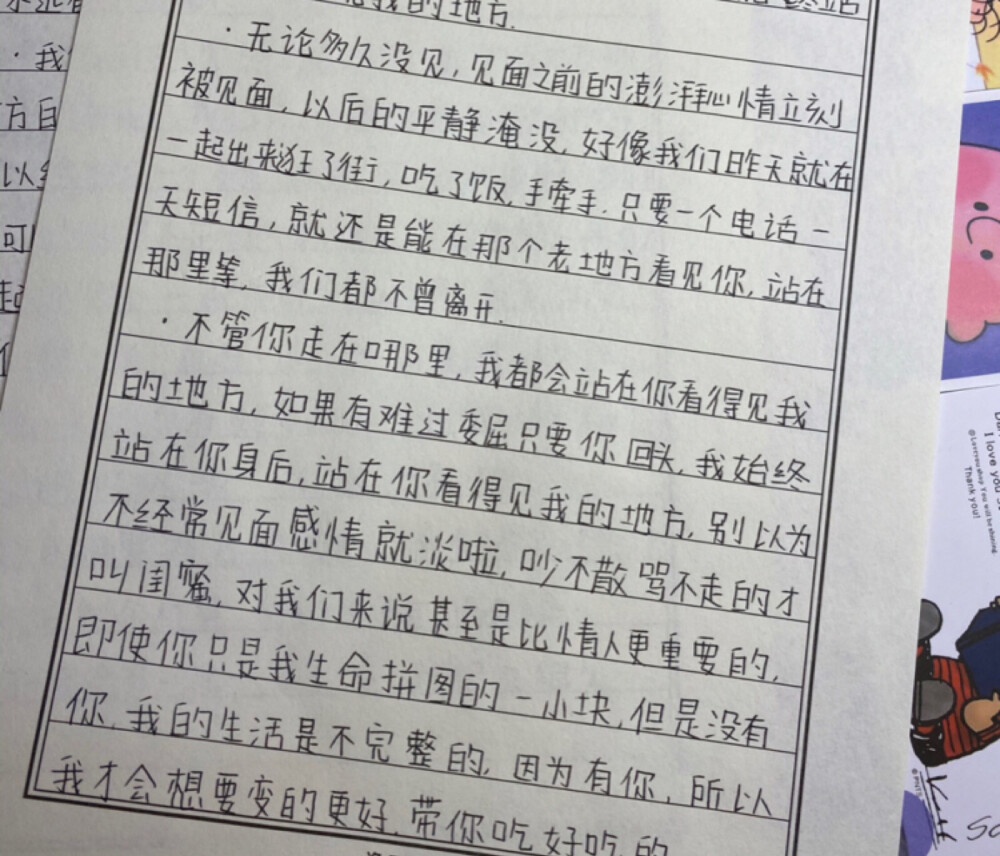 我的地方.
·无论多久没见,见面之前的澎湃心情立刻
被见面,以后的平静淹没,好像我们昨天就在
一起出来逛了街,吃了饭,手牵手.只要一个电话一
天短信,就还是能在那个老地方看见你,站在
那里等,我们都不曾离开.
·不管你走在哪里,我都会站在你看得见我
的地方,如果有难过委屈只要你回头,我始终
站在你身后,站在你看得见我的地方,别以为
不经常见面感情就淡啦,吵不散骂不走的才
叫闺蜜,对我们来说甚至是比情人更重要的,
即使你只是我生命拼图的一小块,但是没有
你,我的生活是不完整的,因为有你,所以
我才会想要变的更好.带你吃好吃的
·我
方自
以
可
I love you s
Thank you!